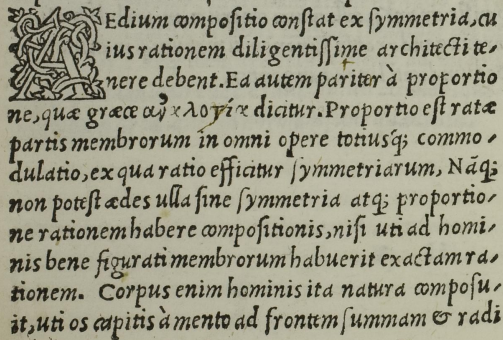 AEdium compositio constat ex symmetria, cu
ius rationem diligentissime architecti te⸗
nere debent. Ea autem pariter à proportio
ne, quæ græce ἀναλογία dicitur. Proportio est ratæ
partis membrorum in omni opere totiusq; commo⸗
dulatio, ex qua ratio efficitur symmetriarum, Nãq;
non potest ædes ulla sine symmetria atq; proportio⸗
ne rationem habere compositionis, nisi uti ad homi⸗
nis bene figurati membrorum habuerit exactam ra⸗
tionem. Corpus enim hominis ita natura composu⸗
it, uti os capitis à mento ad frontem summam & radi